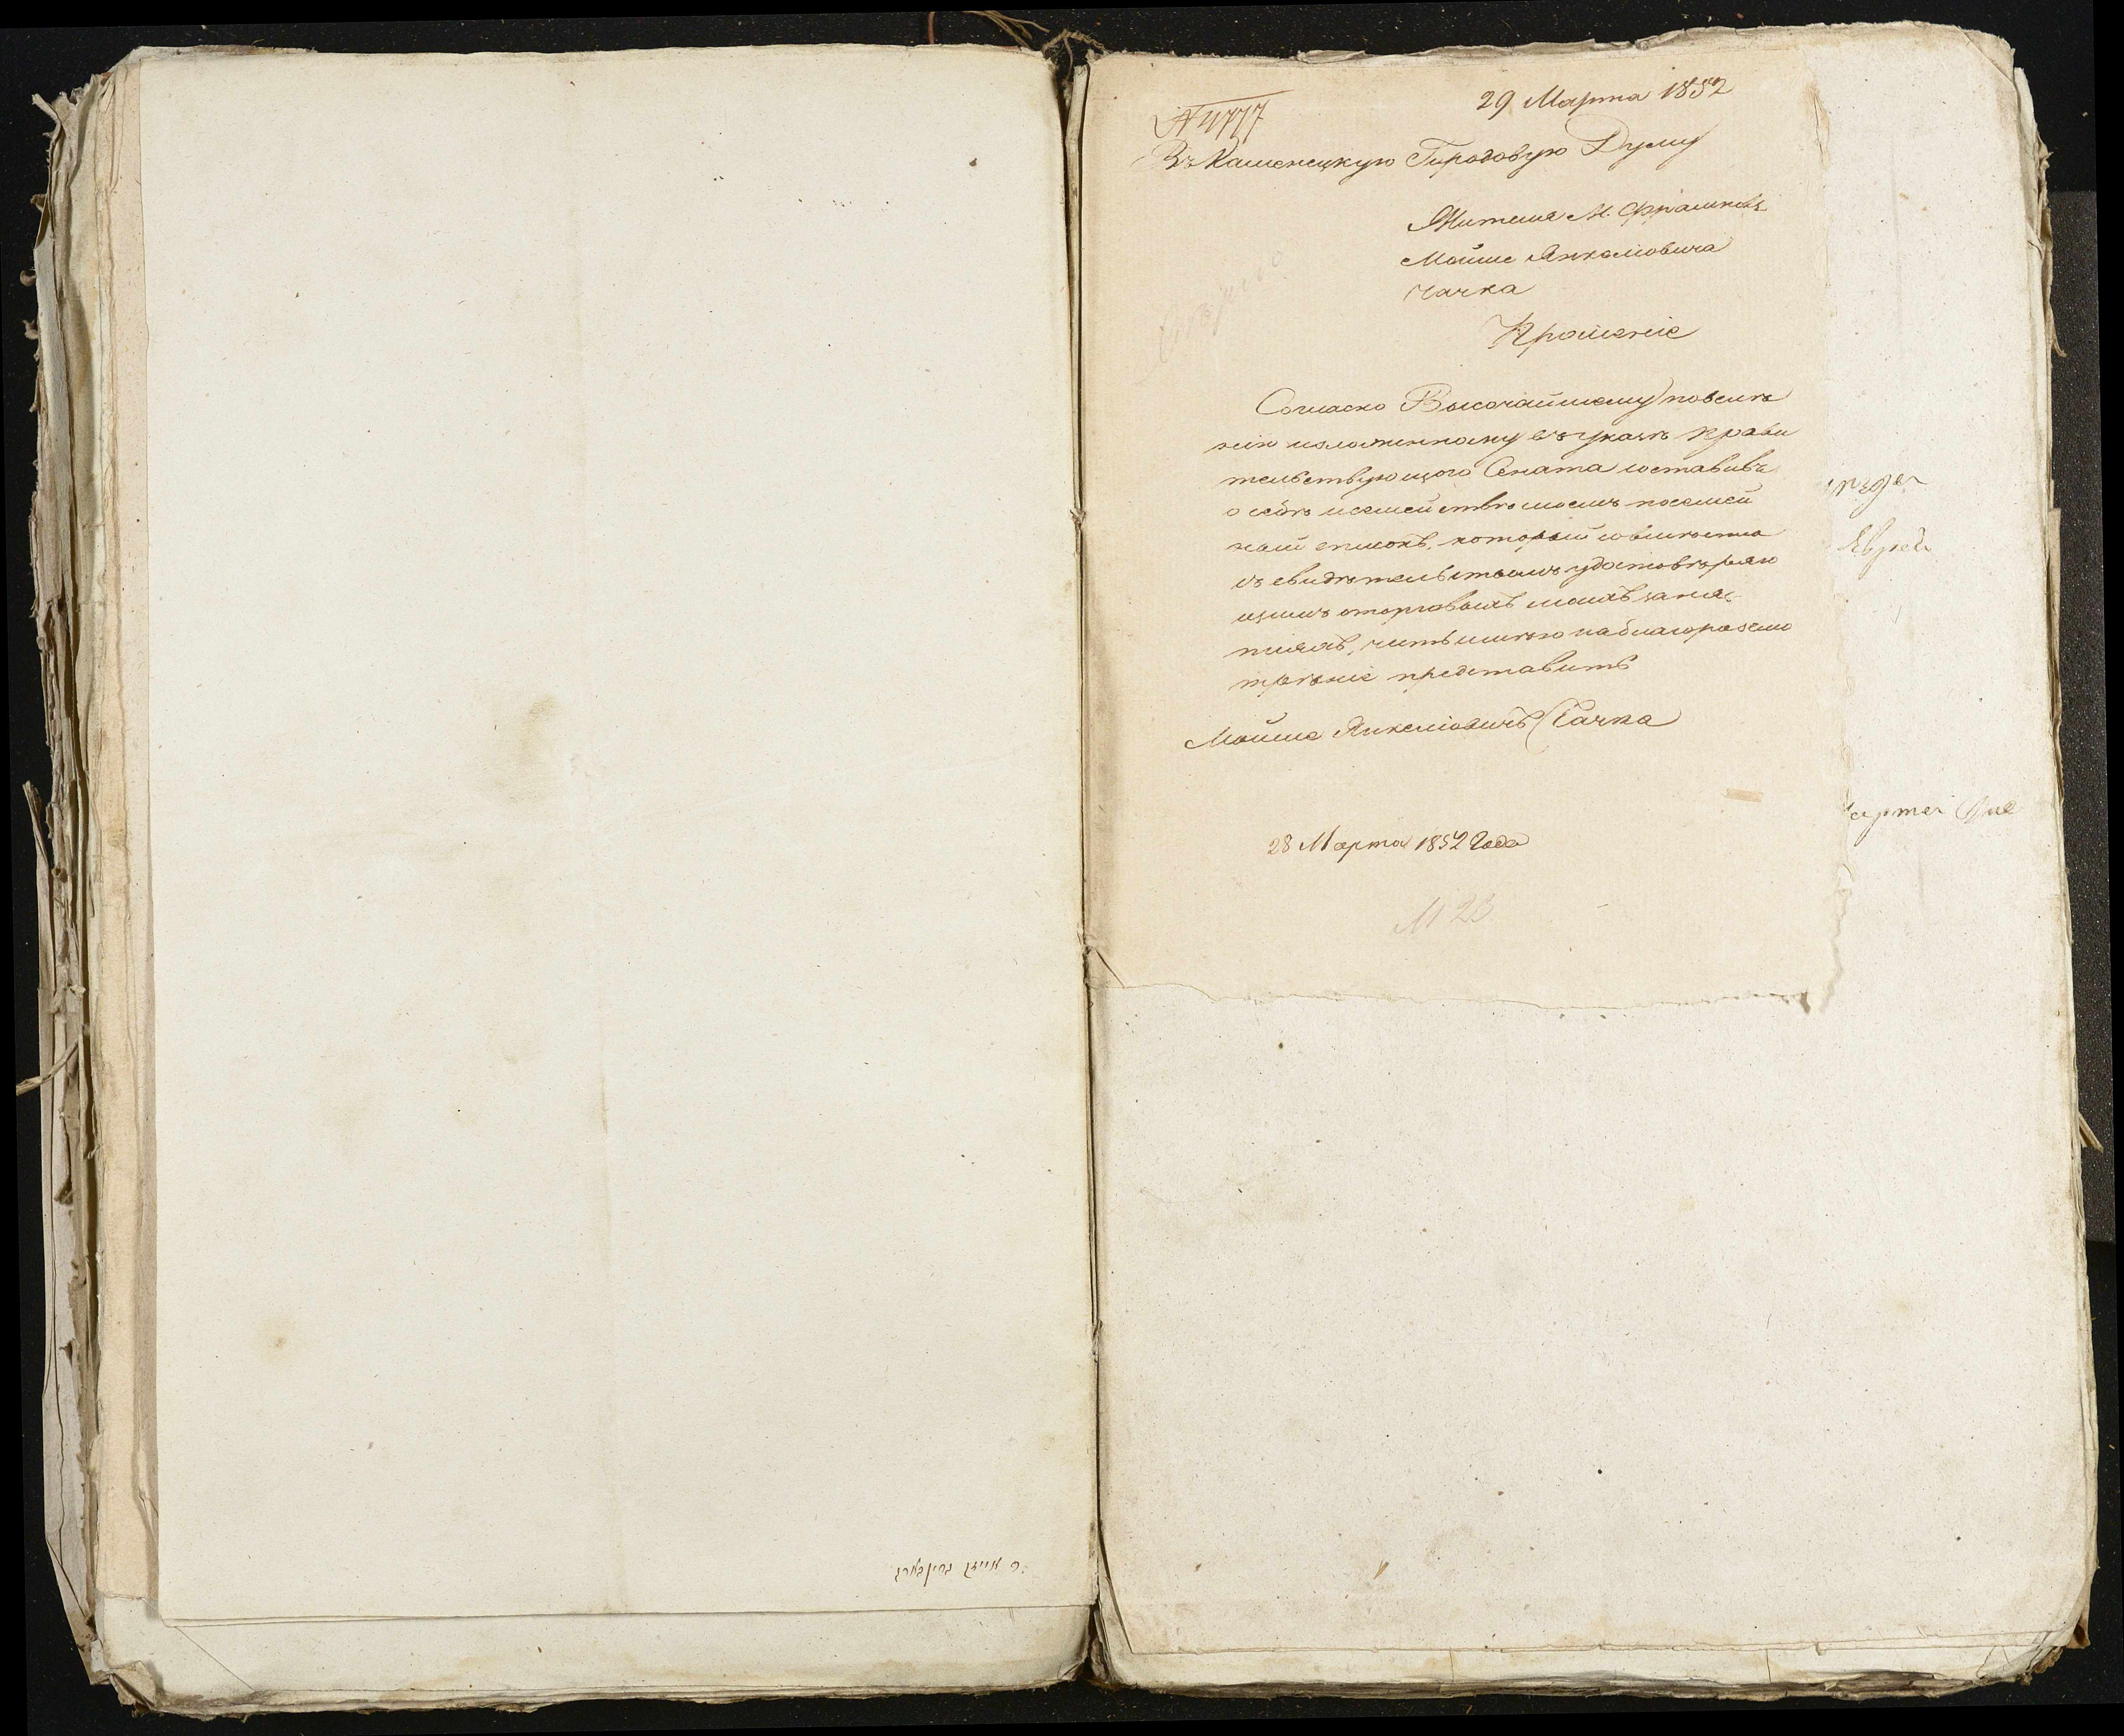 29 Марта 1852
N 4777
Въ Каменецкую Городовую Думу
Жителя М. Фрамповъ
Мойше Янкелiовича
Гачка
Прошенiе
Согласно Высочайшему повелѣ
нiю изложенному въ указѣ Прави
тельствующого Сената составивъ
о себѣ и семействѣ моемъ посемей
ный списокъ, который совмѣстно
съ свидѣтельствомъ удостовѣряю
щимъ оторговыхъ моихъ заня-
тiяхъ, честь имѣю на благоразсмо
трѣнiе представить
Мойше Янкелiовичъ Гачка
28 Марта 1852 Года
М 23
Еврей